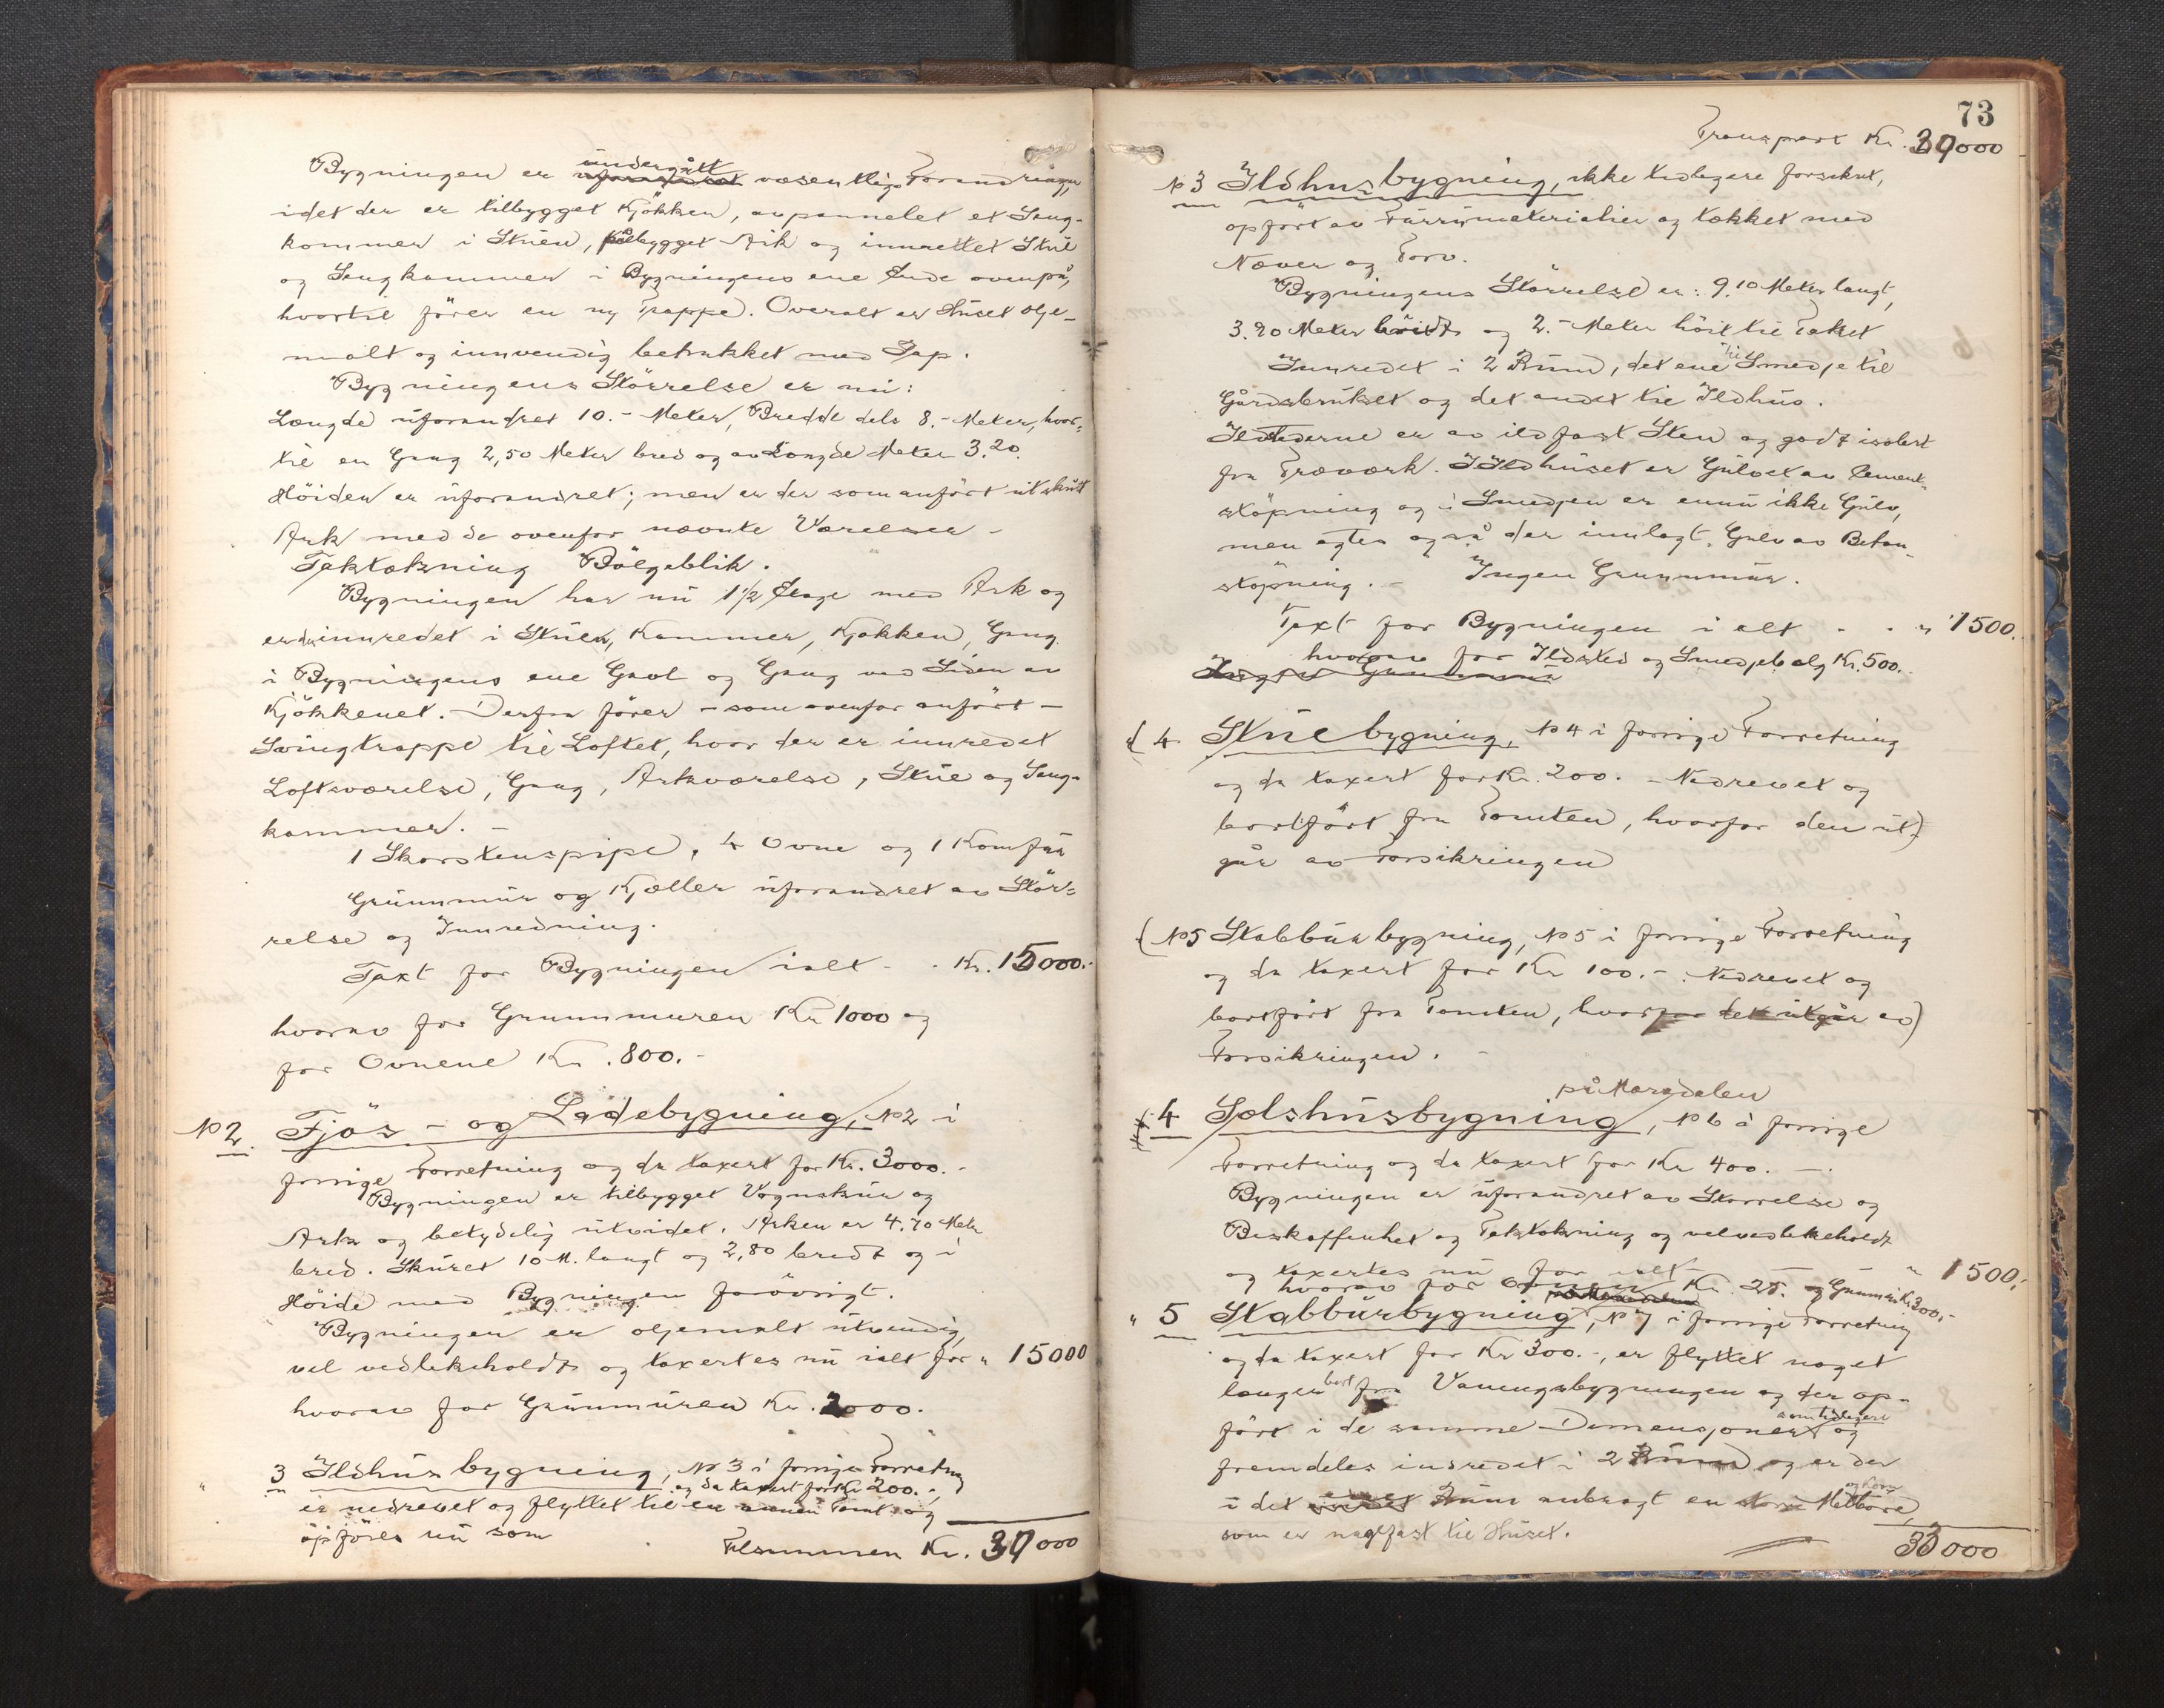 Bygningen er undergått væsentlige Forandringer,
idet der er tilbygget Kjøkken, avpannelet et Seng-
kammer i Stuen, påbygget Ark og innrettet Stue
og Sengkammer i Bygningens ene Ende ovenpå,
hvortil fører en ny Trappe. Overalt er Huset olje-
malt og innvendig betrukket med Pap.
Bygningens Størrelse er nu:
Længde uforandret 10.- Meter, Bredde dels 8.- Meter, hvor-
til en Gang 2,50 Meter bred og av Længde Meter 3.20.
Høiden er uforandret; men er der som anført utskutt
Ark med de ovenfor nævnte Værelser -
Taktækning Bølgeblik.
Bygningen har nu 1½ Etage med Ark og
er da innredet i Stue, Kammer, Kjøkken, Gang
i Bygningens ene Gavl og Gang ved Siden av
Kjøkkenet. Derfra fører - som ovenfor anført -
Svingtrappe til Loftet, hvor der er innredet
Loftsværelse, Gang, Arkværelse, Stue og Seng-
kammer. -
1 Skorstenspipe, 4 Ovne og 1 Komfur
Grunnmur og Kjæller uforandret av Stør-
relse og Innredning.
Taxt for Bygningen ialt - . Kr. 15000.-
hvorav for Grunnmuren Kr 1000 og
for Ovnene Kr. 800.-
No 2. Fjøs - og Ladebygning, No 2 i
forrige Forretning og da taxert for Kr. 3000.-
Bygningen er tilbygget Vognskur og
Ark og betydelig utvidet. Arken er 4.70 Meter
bred. Skuret 10 M. langt og 2,80 bredt og i
Høide med Bygningen forøvrigt.
Bygningen er oljemalt utvendig,
vel vedlikeholdt og taxertes nu ialt for " 15000
hvorav for Grunnmuren Kr. 2000.
" 3 Ildhusbygning, No 3 i forrige Forretning
og da taxert for Kr 200.-,
er nedrevet og flyttet til en annen Tomt og
opføres nu som
Tilsammen Kr. 30000
73
Transport Kr. 30000
No 3 Ildhusbygning, ikke tidligere forsikret,
opført av Furumaterialier og tækket med
Næver og Torv.
Bygningens Størrelse er: 9.10 Meter langt,
3.20 Meter bredt og 2.- Meter høit til Taket
Innredet i 2 Rum, det ene til Smedje til
Gårdsbruket og det andet til Ildhus.
Ildstederne er av ildfast Sten og godt isolert
fra Træværk. I Ildhuset er Gulvet av Cement-
støpning og i Smedjen er ennu ikke Gulv,
men agtes også der innlagt Gulv av Beton-
støpning. - Ingen Grunnmur.
Taxt for Bygningen i alt - . " 1500.
hvorav for Ildsted og Smedjebelg Kr. 500.-
Ingen Grunnmur
( 4 Stuebygning, No 4 i forrige Forretning
og da taxert for Kr. 200. - Nedrevet og
bortført fra Tomten, hvorfor den ut-)
går av Forsikringen
( No 5 Stabburbygning, No 5 i forrige Forretning
og da taxert for Kr 100.-. Nedrevet og
bortført fra Tomten, hvorfor det utgår av)
Forsikringen.
på Maradalen
" 4 Sælshusbygning, No 6 i forrige
Forretning og da taxert for Kr 400. -.
Bygningen er uforandret av Størrelse og
Beskaffenhet og Taktækning og velvedlikeholdt
og taxertes nu for ialt - " 1500.-
hvorav for Ovnen Kr. 25. og Grunnmur Kr 300.-
" 5 Stabburbygning, No 7 i forrige Forretning
og da taxert for Kr 300.-, er flyttet noget
længer bort fra Vaningsbygningen og der op-
ført i de samme Dimensjoner som tidligere og
fremdeles indredet i 2 Rum og er der
i det Rum anbragt en stor Melbøre,
som er naglefast til Huset.
33000